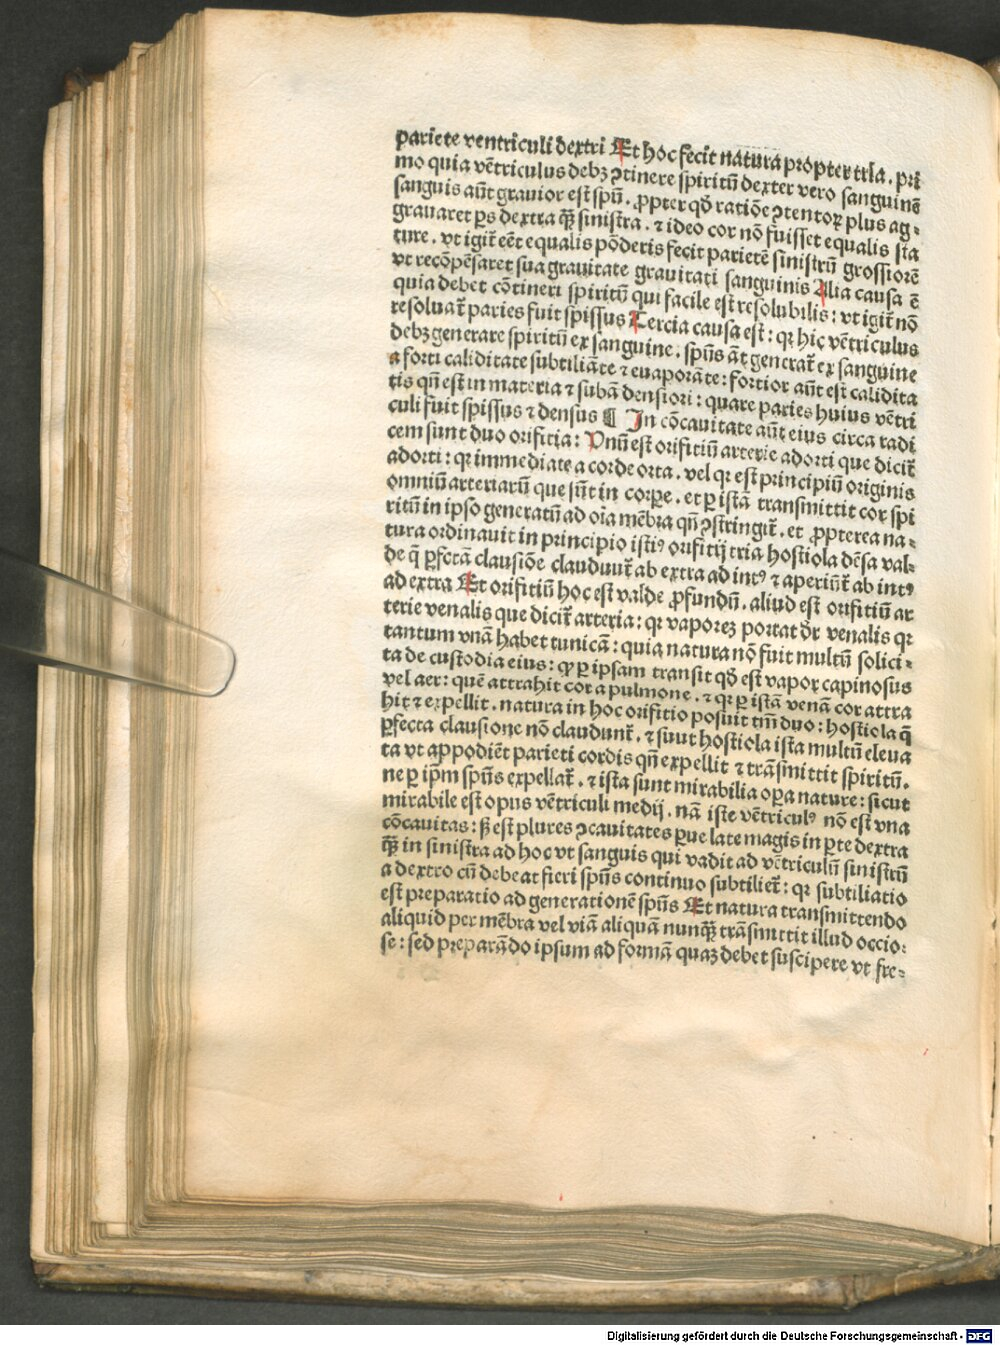 pariete ventriculi dextri Et hoc fecit natura propter tria. pri
mo quia vētriculus debꝫ ↄtinere spiritū dexter vero sanguinē
sanguis aūt grauior est spū. ꝓpter qđ ratiōe ↄtentoꝝ plus ag⸗
grauaret ꝑs dextra ꝙ̄ sinistra. ⁊ ideo cor nō fuisset equalis sta
ture. vt igit̄ eēt equalis pōderis fecit parietē sinistrū grossiorē
vt recōpēsaret sua grauitate grauitati sanguinis Alia causa ē
quia debet cōtineri spiritū qui facile est resolubilis: vt igit̄ nō
resoluat̄ paries fuit spissus Tercia causa est: qꝛ hic vētriculus
debꝫ generare spiritū ex sanguine. spūs āt generat̄ ex sanguine
a forti caliditate subtiliāte ⁊ euaporāte: fortior aūt est calidita
tis qn̄ est in materia ⁊ subā densiori: quare paries huius vētri
culi fuit spissus ⁊ densus ¶ In cōcauitate aūt eius circa radi
cem sunt duo orifitia: Vnū est orifitiū arterie adorti que dicit̄
adorti: qꝛ immediate a corde orta. vel qꝛ est principiū originis
omniū arteriarū que sūt in corꝑe. et ꝑ istā transmittit cor spi
ritū in ipso generatū ad oīa mēbra qn̄ ↄstringit̄. et ꝓpterea na⸗
tura ordinauit in principio istiꝰ orifitij tria hostiola dēsa val⸗
de q̄ ꝑfectā clausiōe clauduut̄ ab extra ad intꝰ ⁊ aperiūt̄ ab intꝰ
ad extra Et orifitiū hoc est valde ꝓfundū. aliud est orifitiū ar
terie venalis que dicit̄ arteria: qꝛ vaporeꝫ portat dr̄ venalis qꝛ
tantum vnā habet tunicā: quia natura nō fuit multū solici⸗
ta de custodia eius: ꝙ ꝑ ipsam transit qđ est vapor capinosus
vel aer: quē attrahit cor a pulmone. ⁊ qꝛ ꝑ istā venā cor attra
hit ⁊ expellit. natura in hoc orifitio posuit tm̄ duo: hostiola q̄
ꝑfecta clausione nō claudunt̄. ⁊ suut hostiola ista multū eleua
ta vt appodiēt parieti cordis qn̄ expellit ⁊ trāsmittit spiritū.
ne ꝑ ip̄m spūs expellat̄. ⁊ ista sunt mirabilia oꝑa nature: sicut
mirabile est opus vētriculi medij. nā iste vētriculꝰ nō est vna
cōcauitas: ß est plures ↄcauitates ꝑue late magis in ꝑte dextra
ꝙ̄ in sinistra ad hoc vt sanguis qui vadit ad vētriculū sinistrū
a dextro cū debeat fieri spūs continuo subtiliet̄: qꝛ subtiliatio
est preparatio ad generationē spūs Et natura transmittendo
aliquid per mēbra vel viā aliquā nunqꝙ̄ trāsmittit illud occio⸗
se: sed preparādo ipsum ad formā quaꝫ debet suscipere vt fre⸗
Digitalisierung gefördert durch die Deutsche Forschungsgemeinschaft - DFG